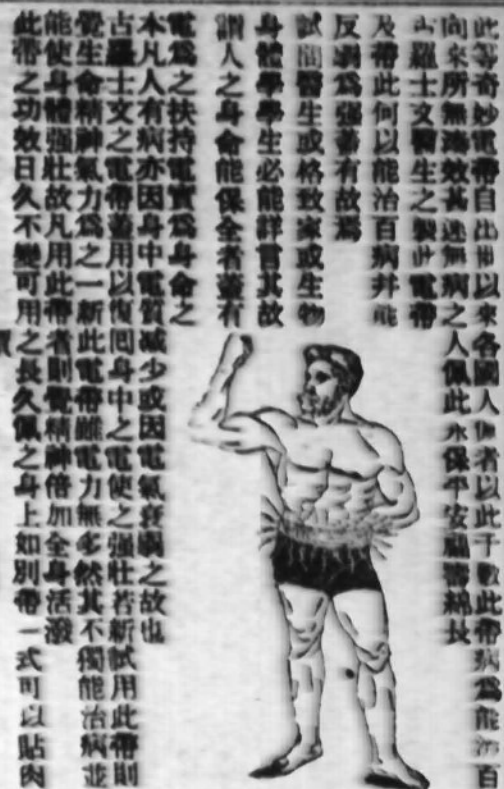 此等奇妙電帶自出世以來各國人佩者以此千數此帶病爲能治百
向來所無瀉效甚速無病之人佩此永保平安福壽綿長
古羅士文醫生之製此電帶
及帶此何以能治百病并能
反弱爲强蓋有故焉
試問醫生或格致家或生物
身體學學生必能詳言其故
謂人之身命能保全者蓋有
電爲之扶持電實爲身命之
本凡人有病亦因身中電質减少或因電氣衰弱之故也
古羅士文之電帶蓋用以復囘身中之電使之强壯若新試用此帶則
覺生命精神氣力爲之一新此電帶雖電力無多然其不獨能治病並
能使身體强壯故凡用此帶者則覺精神倍加全身活潑
此帶之功效日久不變可用之長久佩之身上如別帶一式可以貼肉